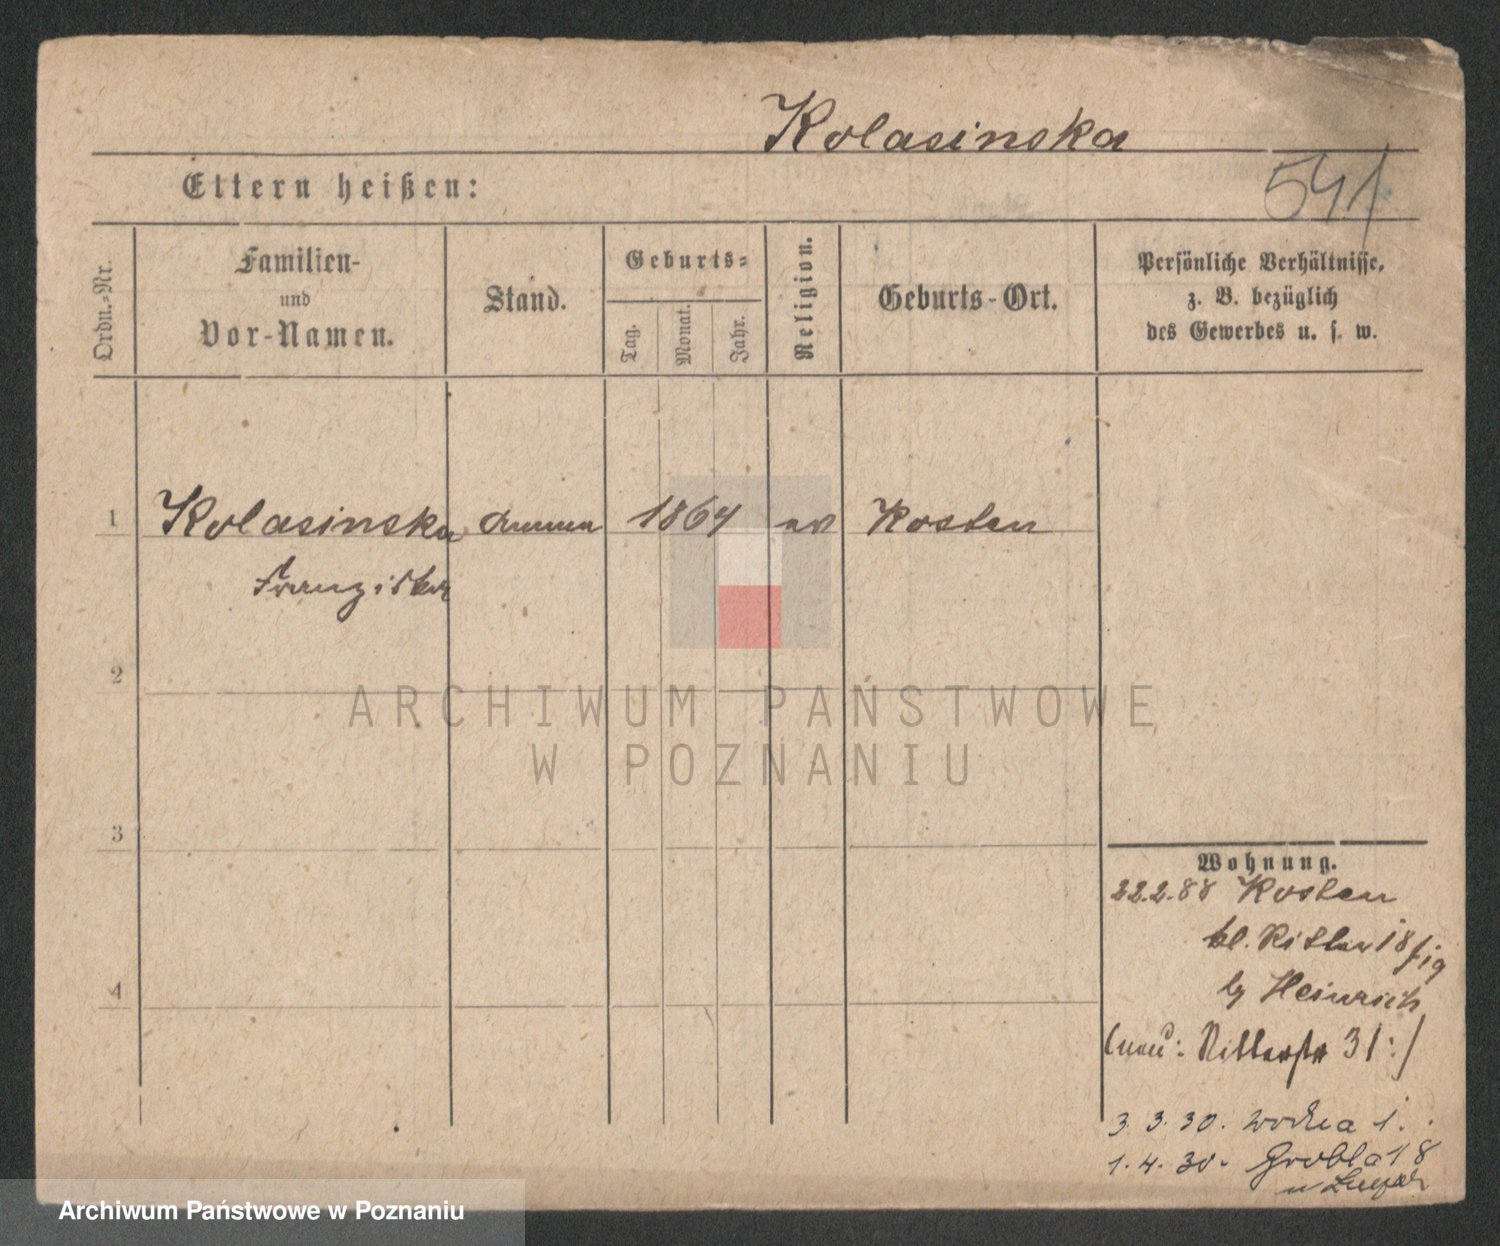 Kolasinska
541
Eltern heißen:
Ordn.-Nr.
Familien-
und
Vor-Namen.
Stand.
Geburts-
Tag.
Monat.
Jahr.
Religion.
Geburts-Ort.
Persönliche Verhältnisse,
z. B. bezüglich
des Gewerbes u. s. w.
1 Kolasinska 1864 Kosten
Franziska
2
3
4
Wohnung.
22.2.88 Kosten
kl. Ritter 18
Heinrich
(neu: Ritterstr 31:)
3. 3. 30. 1.
1. 4. 30. Grobla 18
ARCHIWUM PAŃSTWOWE
W POZNANIU
Archiwum Państwowe w Poznaniu